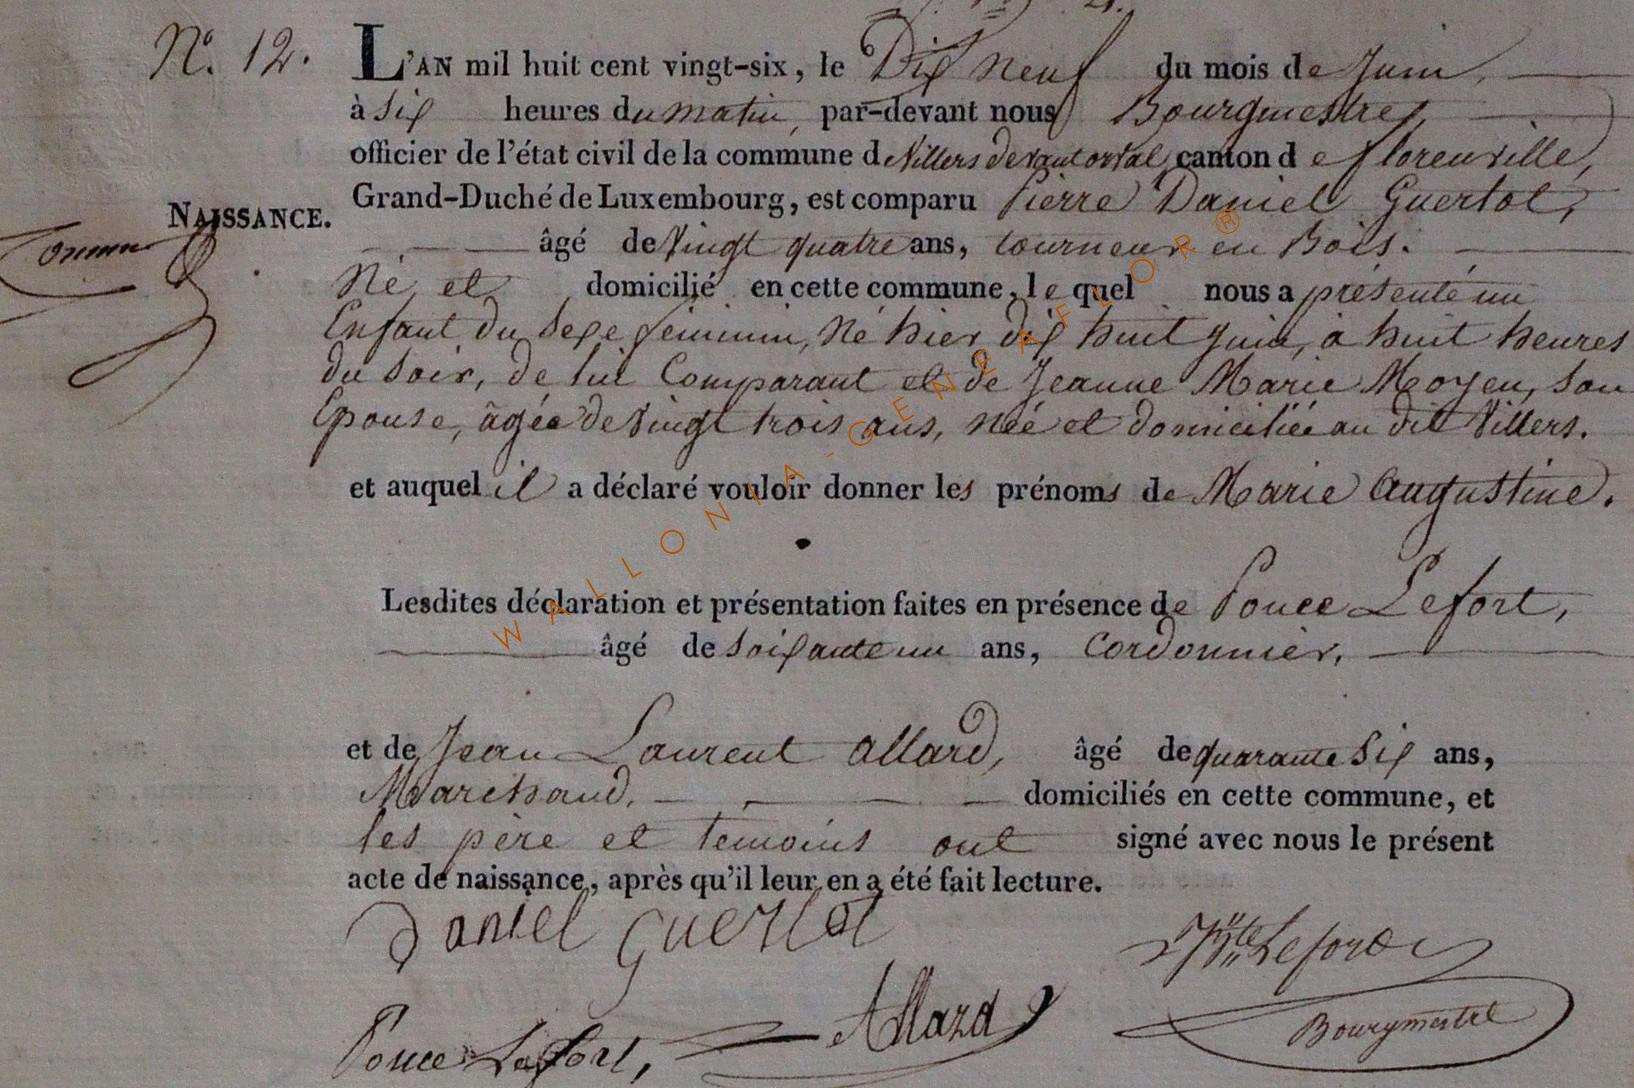 N.º 12.
L'AN mil huit cent vingt-six, le Dix Neuf du mois de Juin,
à Six heures du matin, par-devant nous Bourgmestre,
officier de l'état civil de la commune de Villers devant orval, canton de florenville,
Grand-Duché de Luxembourg, est comparu Pierre Daniel Guerlot,
NAISSANCE.
âgé de Vingt quatre ans, tourneur en Bois.
Né et domicilié en cette commune, lequel nous a présenté un
Enfant du Sexe féminin, Né hier dix huit Juin, à huit heures
du soir, de lui Comparant et de Jeanne Marie Moyen, son
Epouse, âgée de Vingt trois ans, née et domiciliée au dit Villers.
et auquel il a déclaré vouloir donner les prénoms de Marie Augustine.
Lesdites déclaration et présentation faites en présence de Ponce Lefort,
âgé de Soixante un ans, Cordonnier,
et de Jean Laurent Allard, âgé de quarante Six ans,
Marchand, domiciliés en cette commune, et
les père et témoins ont signé avec nous le présent
acte de naissance, après qu'il leur en a été fait lecture.
Daniel Guerlot
Lefort
Ponce Lefort,
Allard
Bourgmestre
WALLONIA-GENEAFLOR®